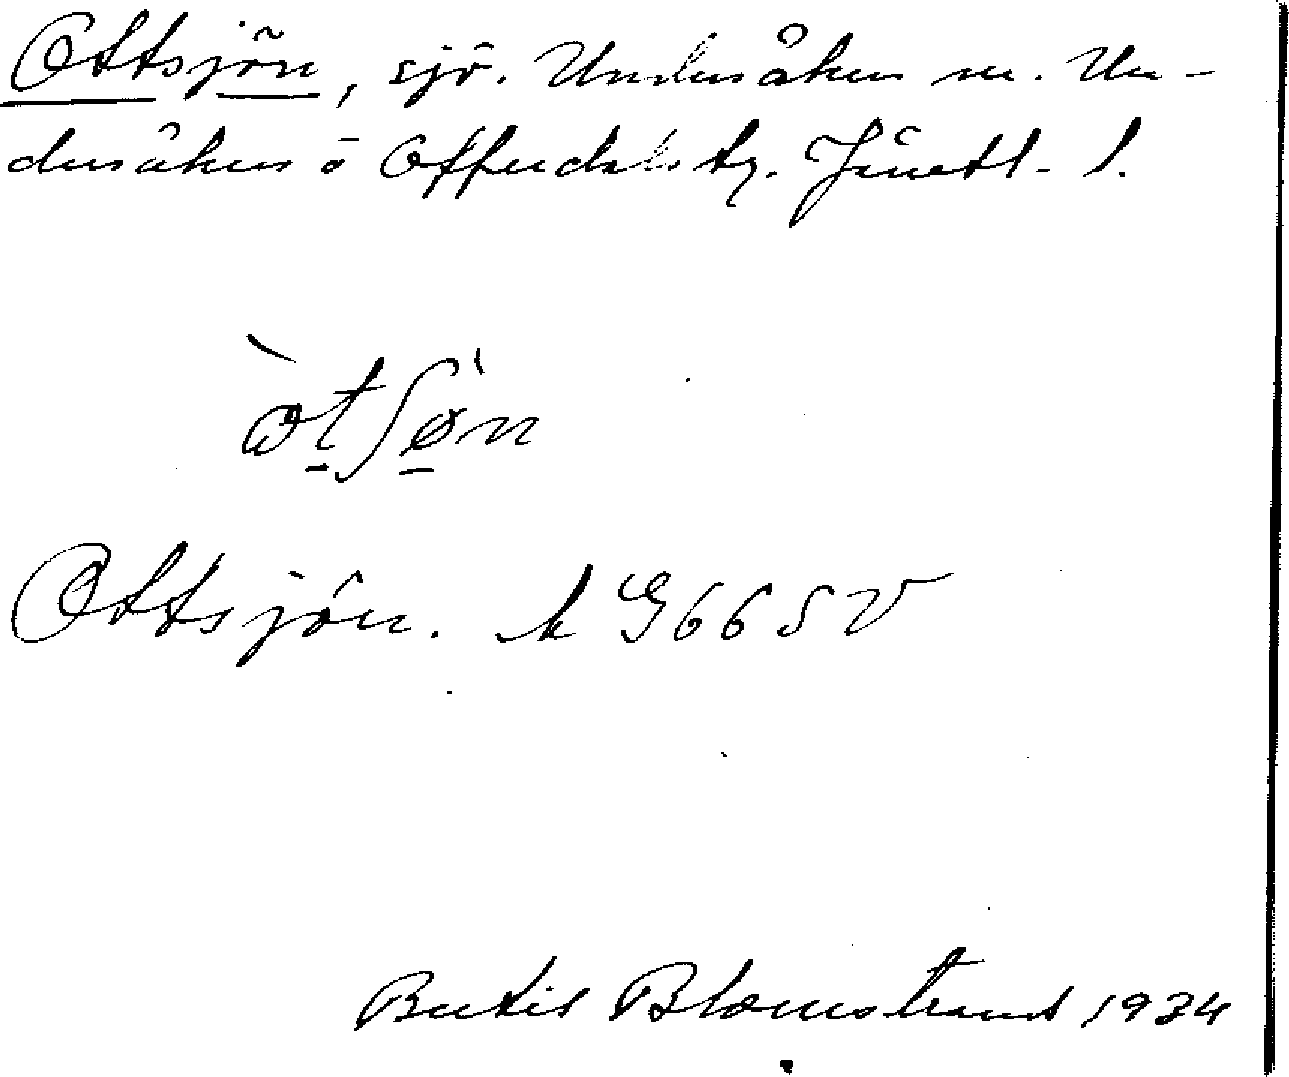 Ottsjön, sjö. Undersåkers sn. Un-
dersåkers o Offerdals tg. Jämtl. l.
òtʃø̀n
Ottsjön. A G66SV
Bertil Blomstrand 1934